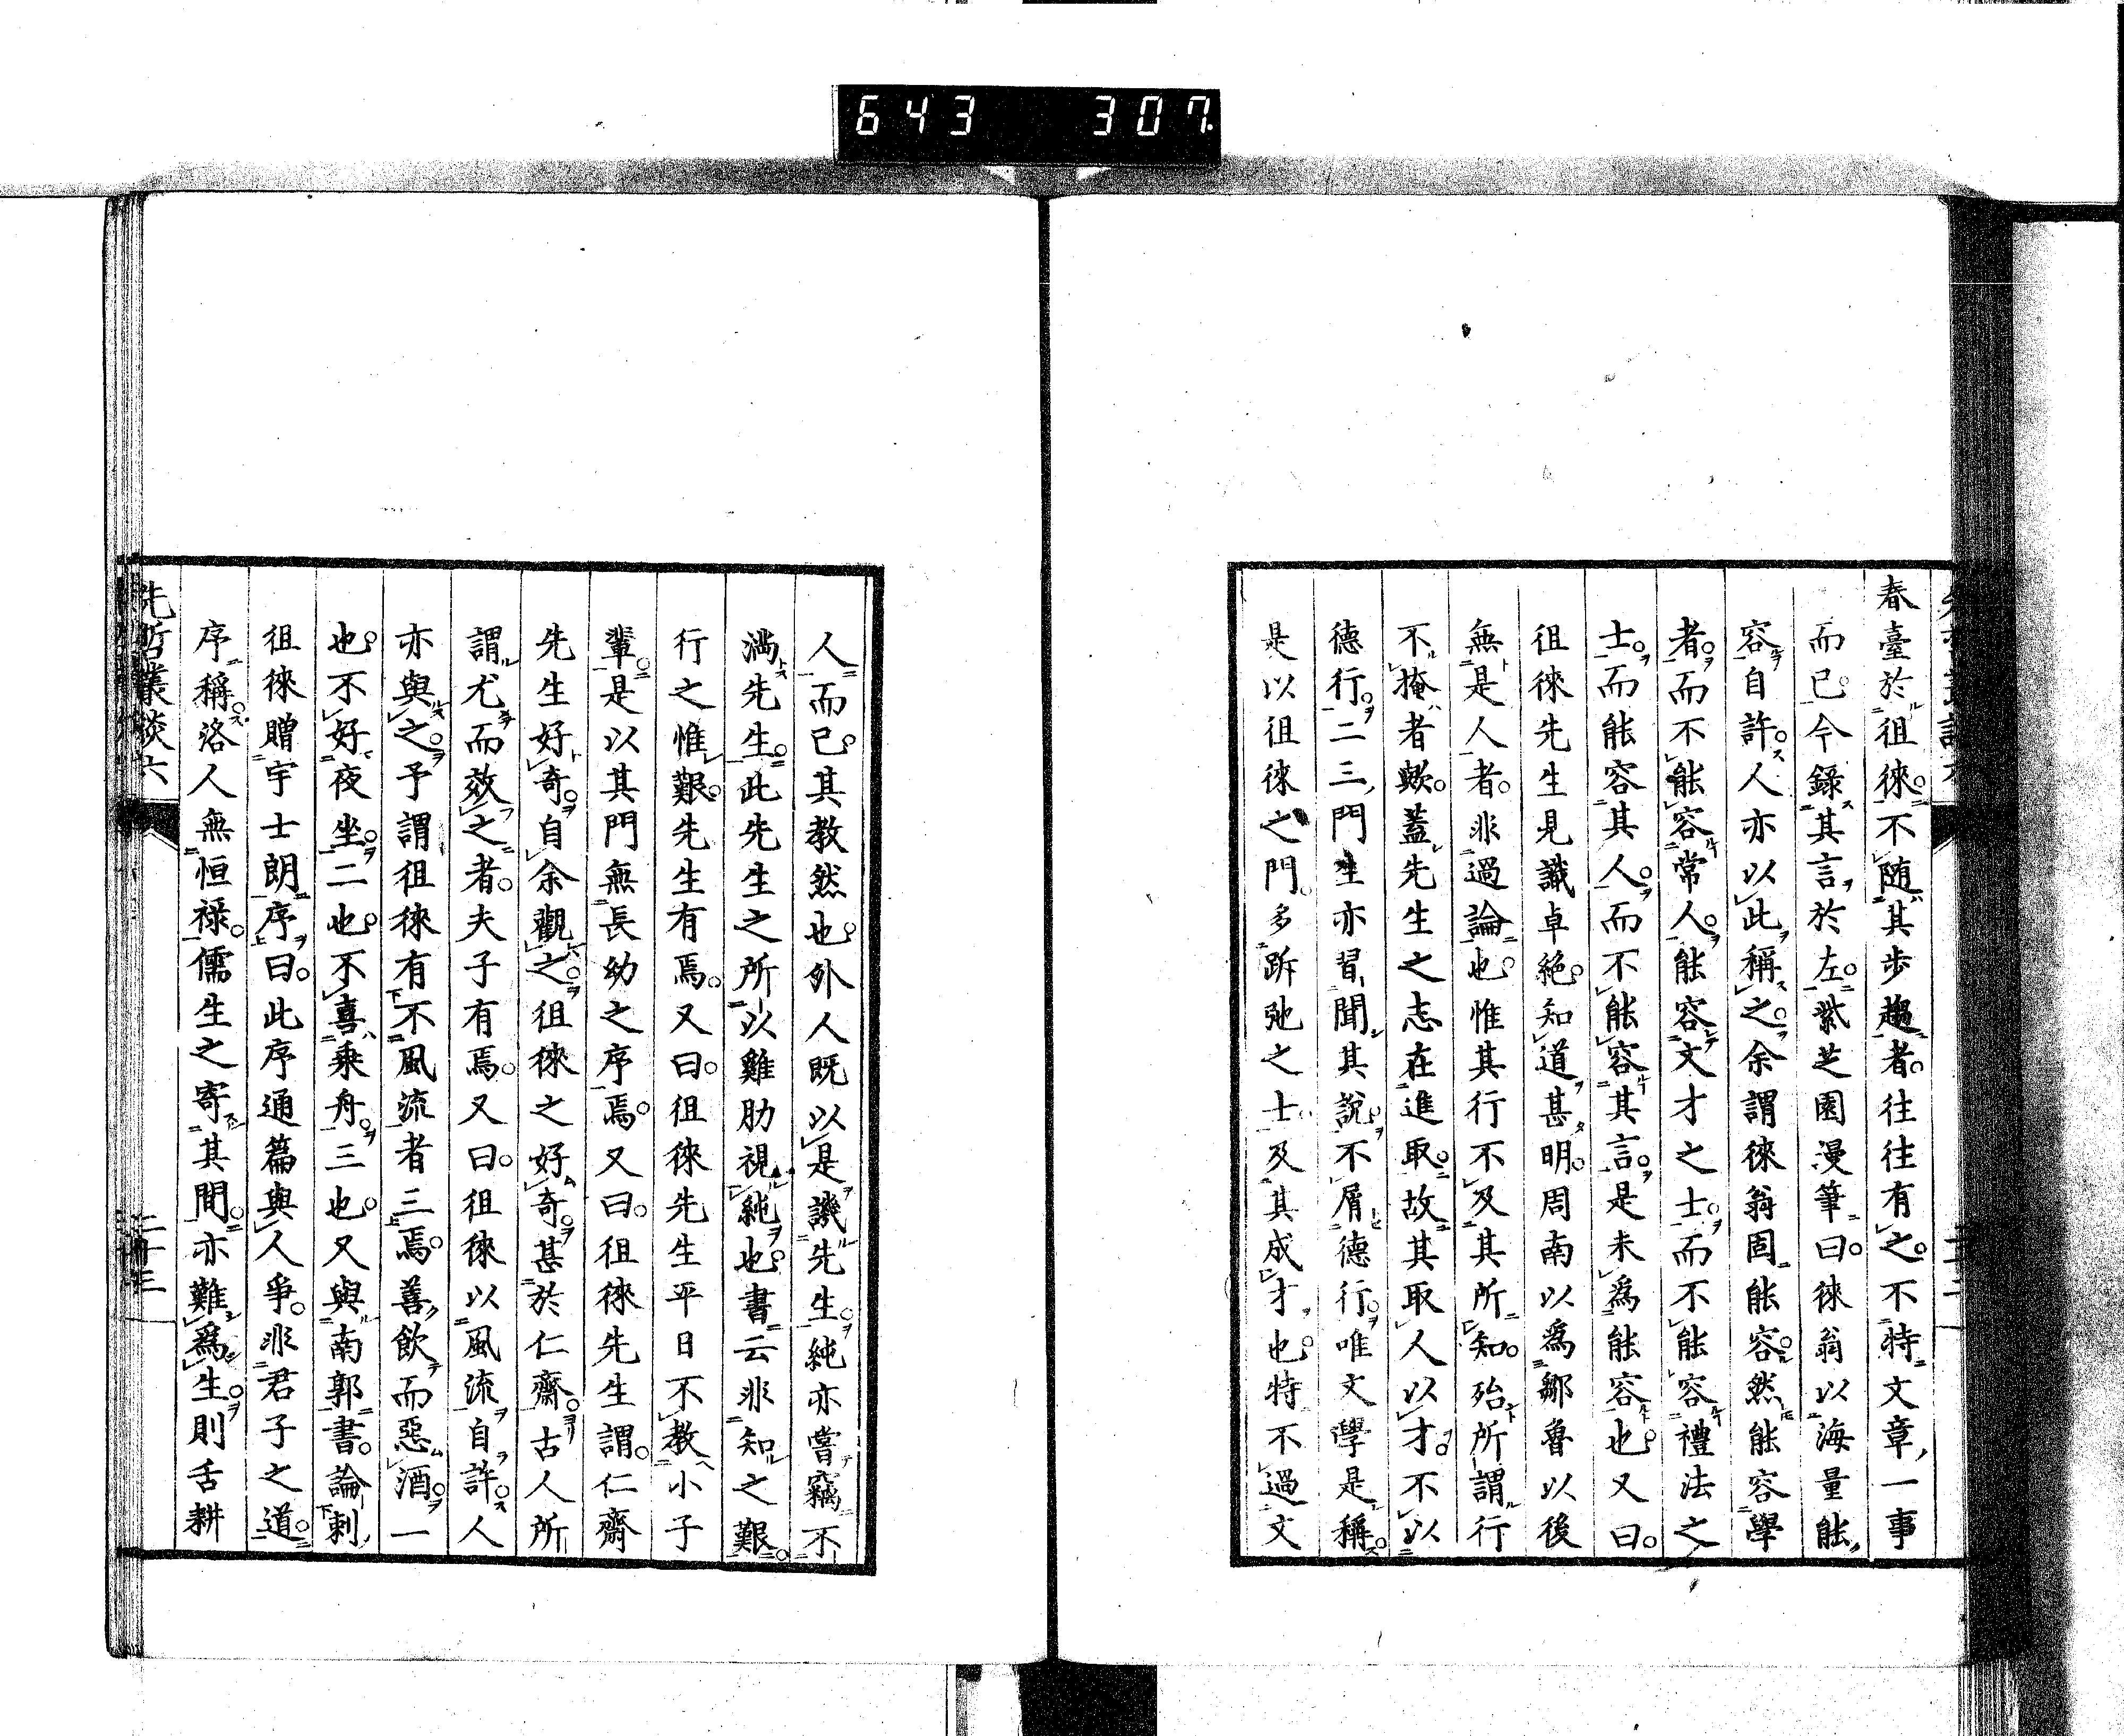 643 307
春臺於徂徠不随其步趨者往往有之不特文章一事
而已今錄其言於左紫芝園漫筆曰徠翁以海量能
容自許人亦以此稱之余謂徠翁固能容然能容學
者而不能容常人能容文才之士而不能容禮法之
士而能容其人而不能容其言是未爲能容也又曰
徂徠先生見識卓絶知道甚明周南以爲鄒魯以後
無是人者非過論也惟其行不及其所知殆所謂行
不掩者歟蓋先生之志在進取故其取人以才不以
德行二三門生亦習聞其說不屑德行唯文學是稱
是以徂徠之門多跅弛之士及其成才也特不過文
人而已其教然也外人既以是譏先生純亦嘗竊不
滿先生此先生之所以雞肋視純也書云非知之艱
行之惟艱先生有焉又曰徂徠先生平日不教小子
輩是以其門無長幼之序焉又曰徂徠先生謂仁齋
先生好奇自余觀之徂徠之好奇甚於仁齋古人所
謂尤而效之者夫子有焉又曰徂徠以風流自許人
亦與之予謂徂徠有不風流者三焉善飮而惡酒一
也不好夜坐二也不喜乘舟三也又與南郭書論刺
徂徠贈宇士朗序曰此序通篇與人爭非君子之道
序稱洛人無恒祿儒生之寄其間亦難爲生則舌耕
先哲叢談六
二十三